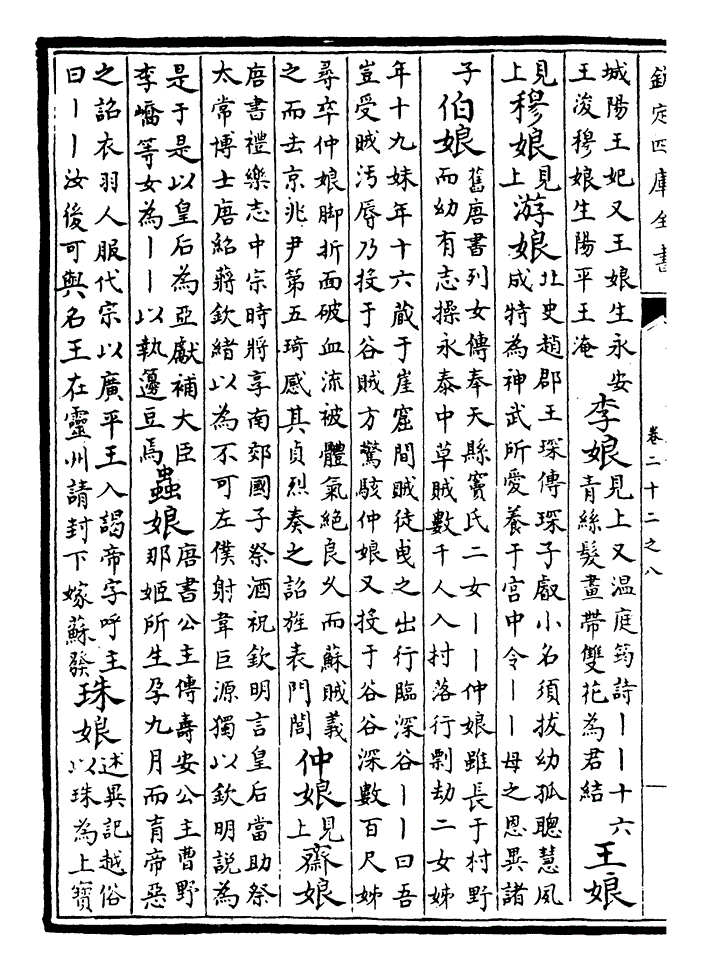 欽定四庫全書
卷二十二之八
城陽王妃又王娘生永安
王浚穆娘生陽平王淹
李娘
見上又温庭筠詩丨丨十六
青絲髮畫帶雙花為君結
王娘
見上
穆娘
見上
游娘
北史趙郡王琛傳琛子叡小名須拔幼孤聰慧夙
成特為神武所愛養于宫中令丨丨母之恩異諸
子
伯娘
舊唐書列女傳奉天縣竇氏二女丨丨仲娘雖長于村野
而幼有志操永泰中草賊數千人入村落行剽劫二女姊
年十九妹年十六藏于崖窟間賊徒曳之出行臨深谷丨丨曰吾
豈受賊汚辱乃投于谷賊方驚駭仲娘又投于谷谷深數百尺姊
尋卒仲娘脚折面破血流被體氣絶良久而蘇賊義
之而去京兆尹第五琦感其貞烈奏之詔旌表門閭
仲娘
見上
齋娘
唐書禮樂志中宗時將享南郊國子祭酒祝欽明言皇后當助祭
太常博士唐紹蔣欽緒以為不可左僕射韋巨源獨以欽明説為
是于是以皇后為亞獻補大臣
李嶠等女為丨丨以執籩豆焉
蟲娘
唐書公主傳壽安公主曹野
那姬所生孕九月而育帝惡
之詔衣羽人服代宗以廣平王入謁帝字呼主
曰丨丨汝後可與名王在靈州請封下嫁蘇發
珠娘
述異記越俗
以珠為上寳